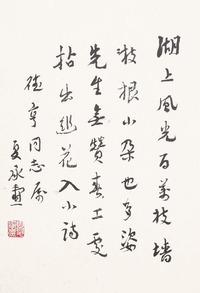 湖上风光百万枝墙
枝根小朵也多姿
先生无赞春工处
拈出幽花入小诗
德亨同志属
夏承焘